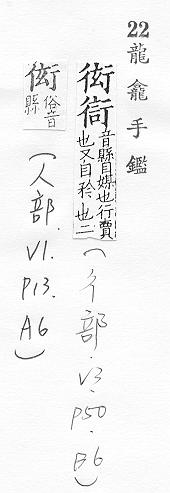 22 龍龕手鑑
衒衙音縣自媒也行賣也又自矜也二(彳部.V3.P50.B6)
衒俗音縣(人部.V1.P13.A6)